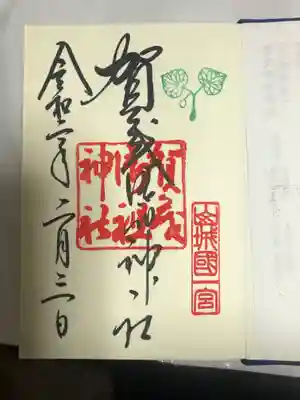 山城國一宮
賀茂御祖神社
賀茂御祖神社
令和二年二月三日